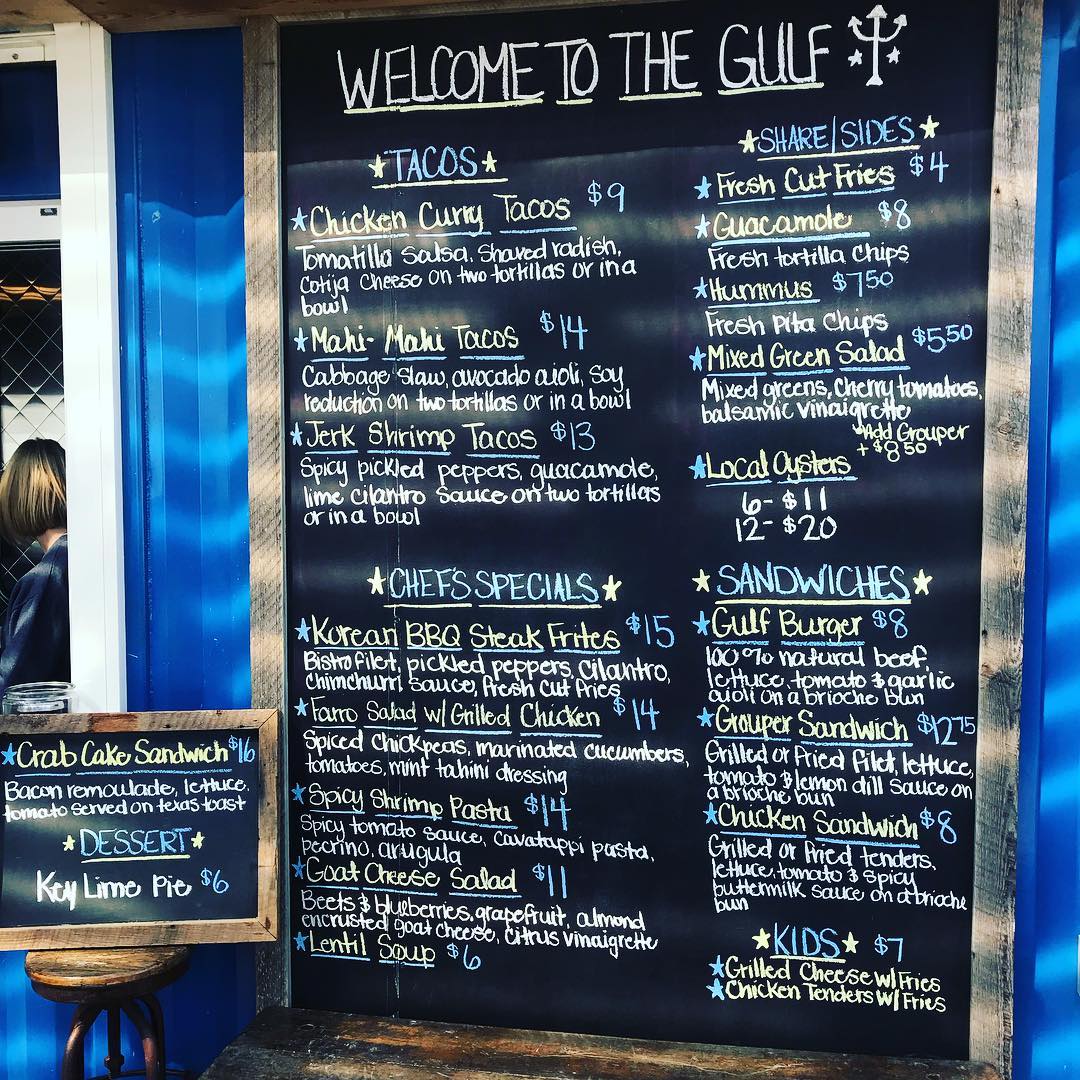 WELCOME TO THE GULF
TACOS
Chicken Curry Tacos $9
Tomatilla Salsa, Shaved radish,
Cotija Cheese on two tortillas or in a
bowl
Mahi-Mahi Tacos $14
Cabbage Slaw, avocado aioli, Soy
reduction on two tortillas or in a bowl
Jerk Shrimp Tacos $13
Spicy pickled peppers, guacamole,
lime cilantro Sauce on two tortillas
or in a bowl
CHEF'S SPECIALS
Korean BBQ Steak Frites $15
Bistro filet, pickled peppers, Cilantro,
Chimchurri Sauce, Fresh Cut Fries
Farro Salad w/ Grilled Chicken $14
Spiced Chickpeas, marinated cucumbers,
tomatoes, mint tahini dressing
Spicy Shrimp Pasta $14
Spicy tomato Sauce, Cavatappi pasta,
pecrino, arugula
Goat Cheese Salad $11
Beets & blueberries, grapefruit, almond
encrusted goat cheese, Citrus Vinaigrette
Lentil Soup $6
SHARE/SIDES
Fresh Cut Fries $4
Guacamole $8
Fresh tortilla Chips
Hummus $7.50
Fresh Pita Chips
Mixed Green Salad $5.50
Mixed greens, Cherry tomatoes,
balsamic vinaigrette
Add Grouper
+ $8.50
Local Oysters
6- $11
12- $20
SANDWICHES
Gulf Burger $8
100% natural beef,
lettuce, tomato & garlic
aioli on a brioche bun
Grouper Sandwich $12.75
Grilled or Fried Filet, lettuce,
tomato & lemon dill Sauce on
a brioche bun
Chicken Sandwich $8
Grilled or Fried tenders,
lettuce, tomato & Spicy
buttermilk Sauce on a brioche
bun
KIDS $7
Grilled Cheese w/ Fries
Chicken Tenders w/ Fries
Crab Cake Sandwich $16
Bacon remoulade, lettuce,
tomato served on texas toast
DESSERT
Key Lime Pie $6